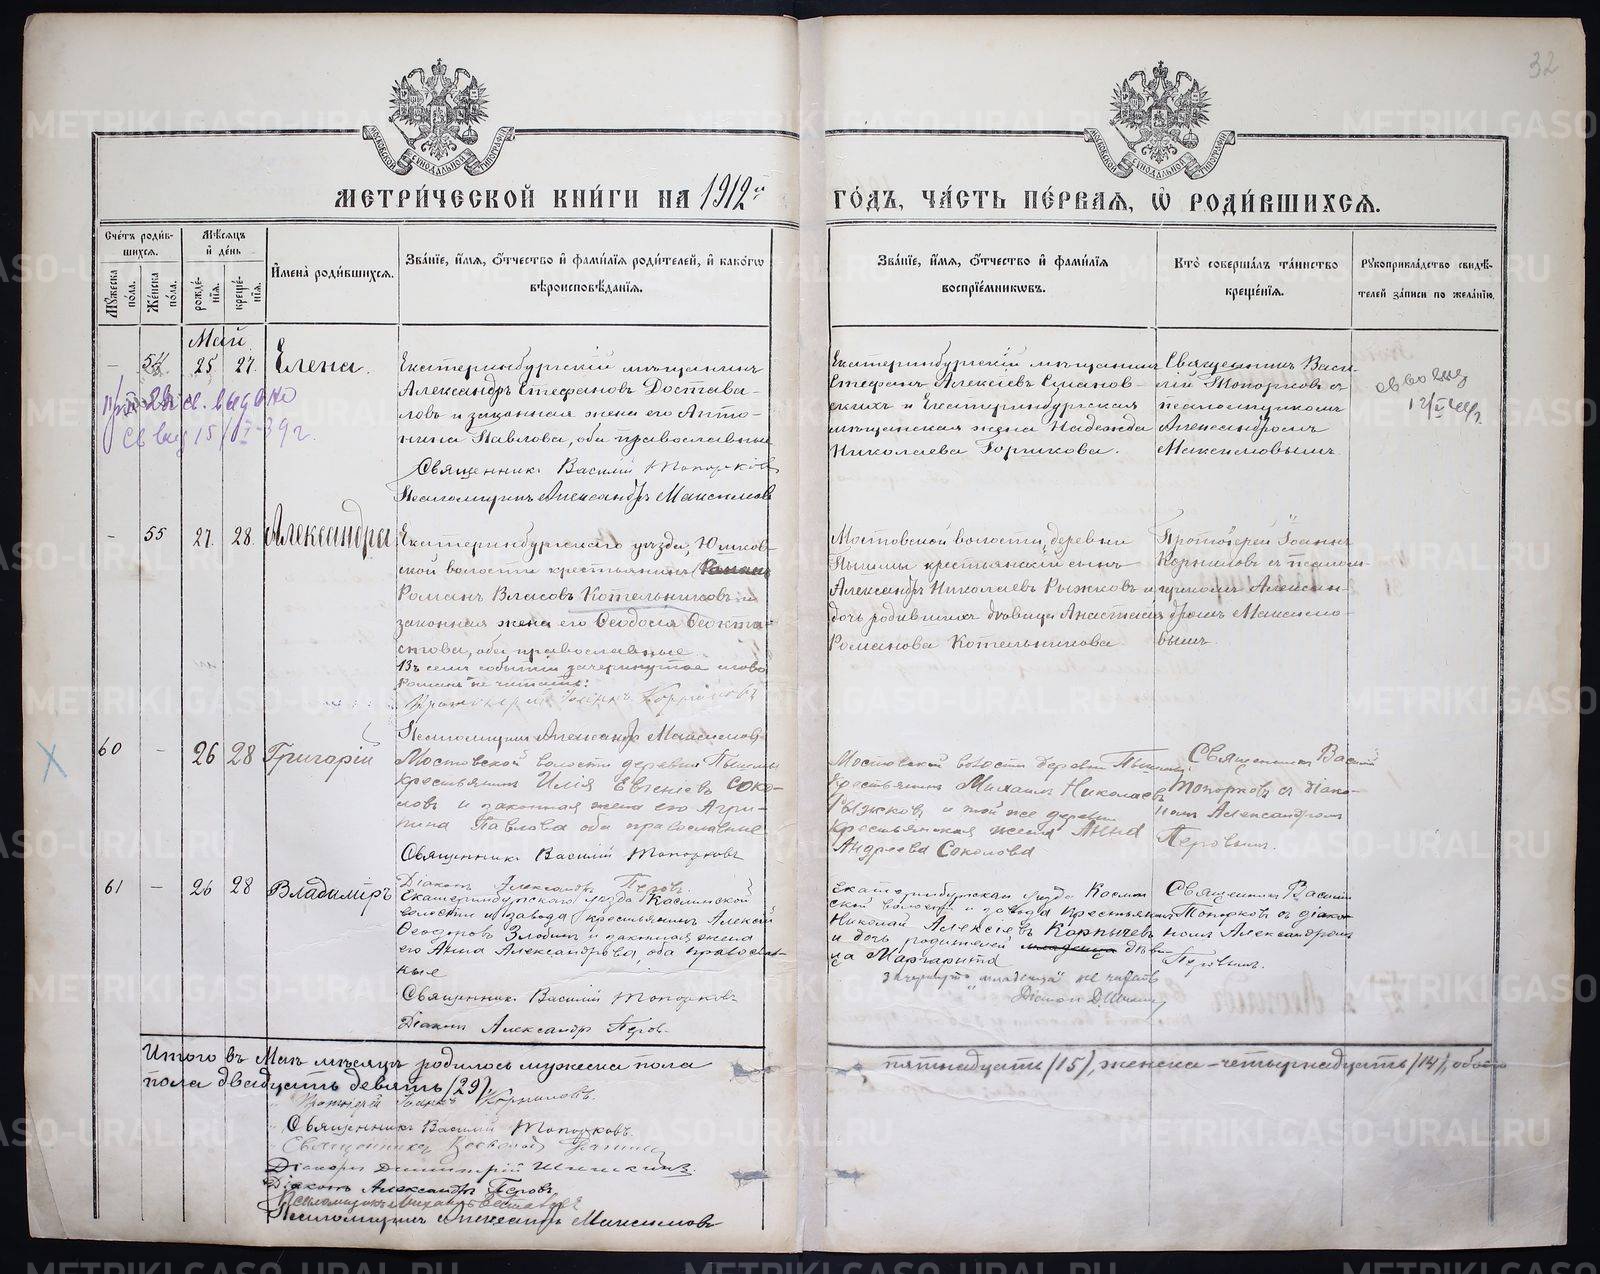 32
МОСКОВСКОЙ СѴНОДАЛЬНОЙ ТИПОГРАФІИ
МОСКОВСКОЙ СѴНОДАЛЬНОЙ ТИПОГРАФІИ
МЕТРИ́ЧЕСКОЙ КНИ́ГИ НА 1912й ГО́ДЪ, ЧА́СТЬ ПЕ́РВАЯ, Ѽ РОДИ́ВШИХСЯ.
Сче́тъ роди́в-
шихся.
Мѣ́сяцъ
и де́нь
Мꙋ́жеска по́ла.
Же́нска по́ла.
рожде́-
нїя.
креще́-
нїя.
И҆мена̀ роди́вшихся.
Зва́нїе, и҆́мя, ѻ҆́тчество и҆ фами́лїя роди́телей, и҆ како́гѡ
вѣроисповѣ́данїя.
Зва́нїе, и҆́мя, ѻ҆́тчество и҆ фами́лїя
воспрїе́мникѡвъ.
Кто̀ соверша́лъ та́инство
креще́нїя.
Рꙋкоприкла́дство свидѣ́-
телей за́писи по жела́нїю.
Май
— 54 25 27. Елена.
Екатеринбургскій мѣщанинъ
Александръ Стефановъ Достава-
ловъ и законная жена его Анто-
нина Павлова, оба православные
Священникъ Василій Топорковъ
Псаломщикъ Александръ Максимовъ
Екатеринбургскій мѣщанинъ
Стефанъ Алексіевъ
и Екатеринбургская
мѣщанская жена Надежда
Николаева
Священникъ Васи-
лій Топорковъ съ
псаломщикомъ
Александромъ
Максимовымъ.
св. выдано
15/I-39 г.
— 55 27. 28. Александра
Екатеринбургскаго уѣзда,
ской волости крестьянинъ
Романъ Власовъ Котельниковъ и
законная жена его Ѳеодосія Ѳеокти-
стова, оба православные.
Въ семъ событіи зачеркнутое слово
"Романъ" не читать:
Протоіерей Іоаннъ Корниловъ
Псаломщикъ Александръ Максимовъ
Мостовской волости, деревни
Пышмы крестьянскій сынъ
Александръ Николаевъ Рыжковъ и
дочь родившихъ дѣвица Анастасія
Романова Котельникова
Протоіерей Іоаннъ
Корниловъ съ псалом-
щикомъ Алексан-
дромъ Максимо-
вымъ
60 — 26 28 Григорій
Мостовской волости деревни Пышмы
крестьянинъ Илія Евгеніевъ Соко-
ловъ и законная жена его Агри-
пина Павлова оба православные
Священникъ Василій Топорковъ
Діаконъ Александръ Перовъ.
Мостовской волости деревни Пышмы
крестьянинъ Михаилъ Николаевъ
Рыжковъ и той же деревни
крестьянская жена Анна
Андреева Соколова
Священникъ Василій
Топорковъ съ діако-
номъ Александромъ
Перовымъ.
61 — 26 28 Владиміръ
Екатеринбургскаго уѣзда Каслинской
волости и завода крестьянинъ Алексѣй
Ѳеодоровъ Злобинъ и законная жена
его Анна Александрова, оба православ-
ные
Священникъ Василій Топорковъ
Діаконъ Александръ Перовъ.
Екатеринбургскаго уѣзда Каслин-
ской волости и завода крестьянинъ
Николай Алексіевъ Карпычевъ
и дочь родителей младенца дѣви-
ца Маргарита
зачеркнуто "младенца" не читать
Діаконъ Д.
Священникъ Василій
Топорковъ съ діако-
номъ Александромъ
Перовымъ.
Итого въ Маѣ мѣсяцѣ родилось мужеска пола пятнадцать /15/, женска — четырнадцать /14/, обоего
пола двадцать девять /29/.
Протоіерей Іоаннъ Корниловъ.
Священникъ Василій Топорковъ.
Священникъ
Діаконъ Димитрій
Діаконъ Александръ Перовъ
Псаломщикъ Михаилъ
Псаломщикъ Александръ Максимовъ
METRIKI.GASO-URAL.RU